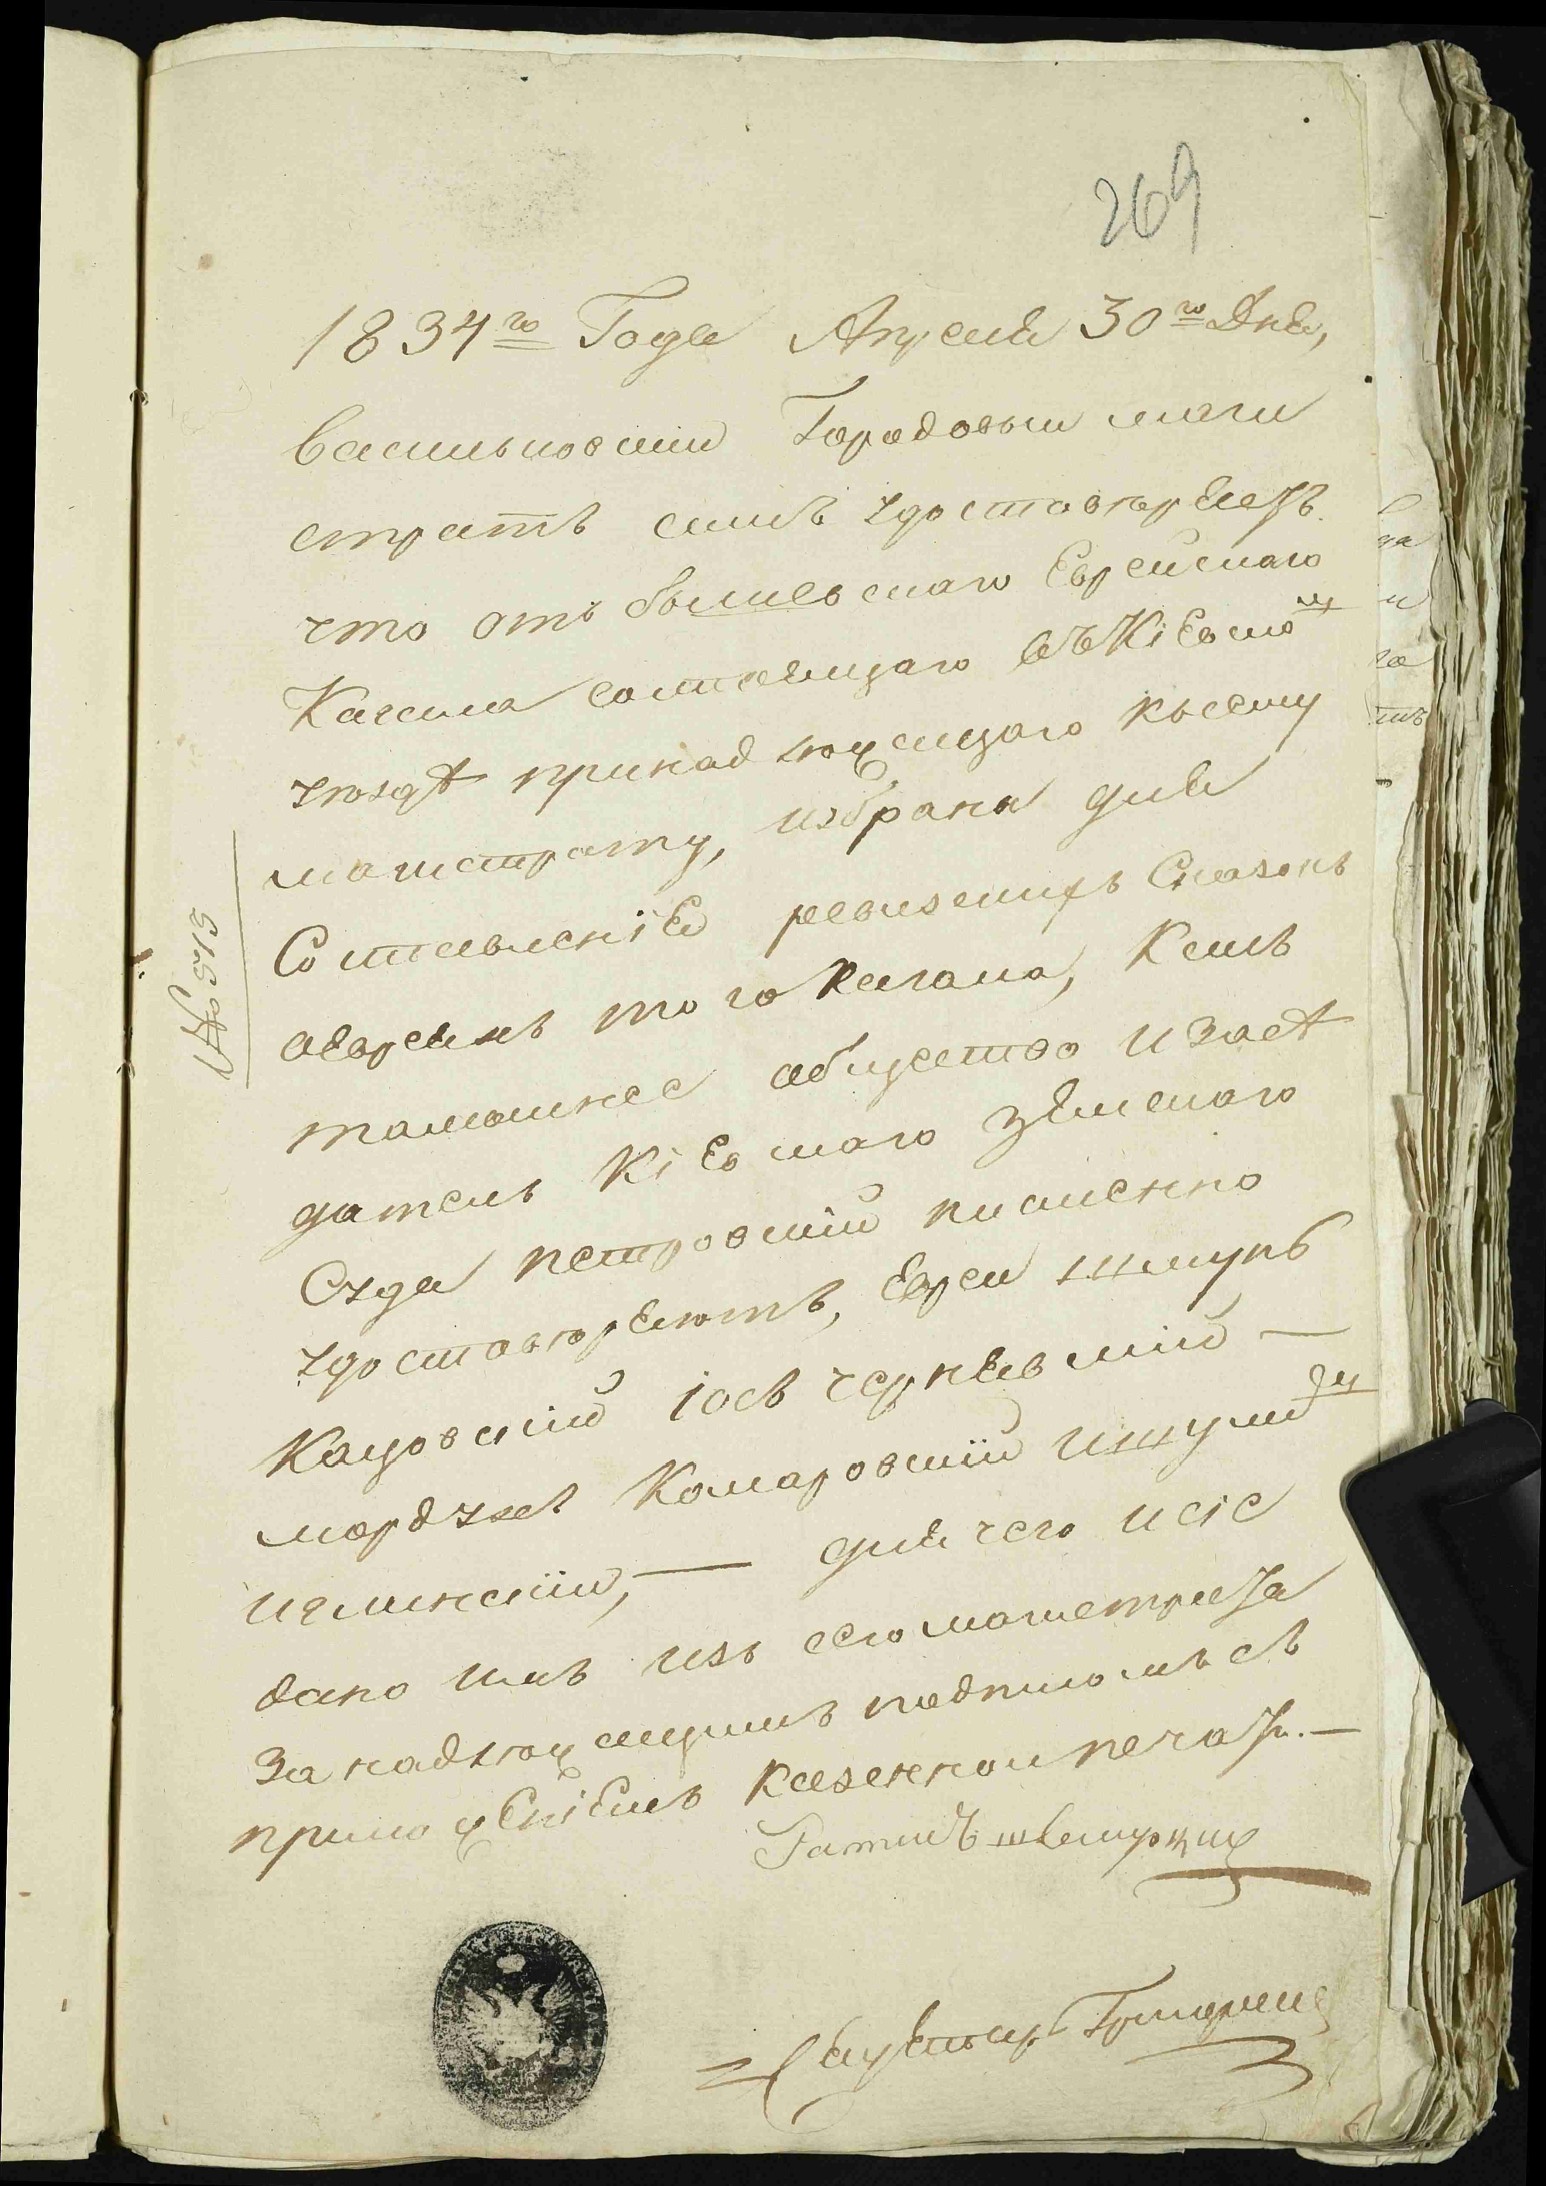 269
1834го Года Апреля 30го Дня,
васильковский Городовый маги
стратъ симъ удостовъряетъ
что отъ бышевскаго Еврейскаго
Кагала состоящаго въ Кіевско
уюздѣ принадлюжащаго къ сему
магистрату, избрана для
Составленія ревизскихъ Сказокъ
аевреямъ того Кагала, Камъ
тамошнее абщество изасѣ
датель Кіевскаго зЕмскаго
Суда петровскій писменно
удостовюряютъ, Евреи
іось чернявскій —
мордухъ Комаровскій
— для чего и сіе
дано имъ изъ сего магистрата
За надлюжащимъ подписомъ съ
приложЕніЕмъ казенной печати. —
Ратманъ
№ 513